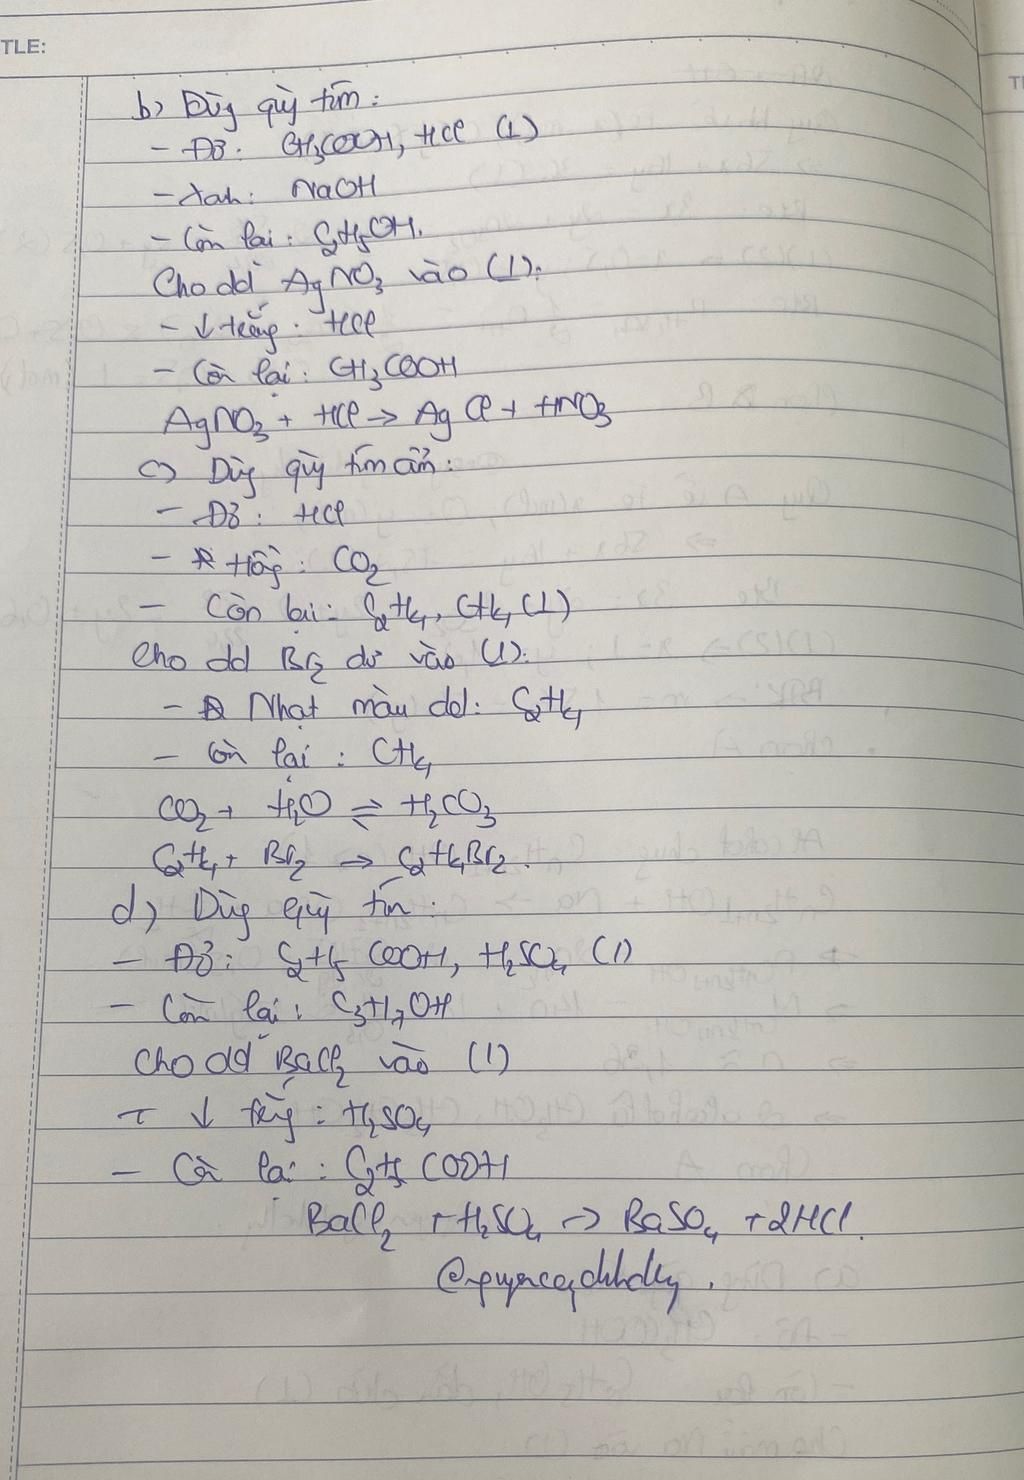 TLE:
b) Dùng quỳ tím:
- Đỏ: CH3COOH, HCl (1)
- Xanh: NaOH
- Còn lại: C2H5OH.
Cho dd AgNO3 vào (1):
- ↓ trắng: HCl
- Còn lại: CH3COOH
AgNO3 + HCl → AgCl + HNO3
c) Dùng quỳ tím ẩm:
- Đỏ: HCl
- Hồng: CO2
- Còn lại: C2H4, CH4 (1)
Cho dd Br2 dư vào (1):
- Nhạt màu dd: C2H4
- Còn lại: CH4
CO2 + H2O ⇌ H2CO3
C2H4 + Br2 → C2H4Br2.
d) Dùng quỳ tím:
- Đỏ: C2H5COOH, H2SO4 (1)
- Còn lại: C3H7OH
Cho dd BaCl2 vào (1)
- ↓ trắng: H2SO4
- Còn lại: C2H5COOH
BaCl2 + H2SO4 → BaSO4 + 2HCl.